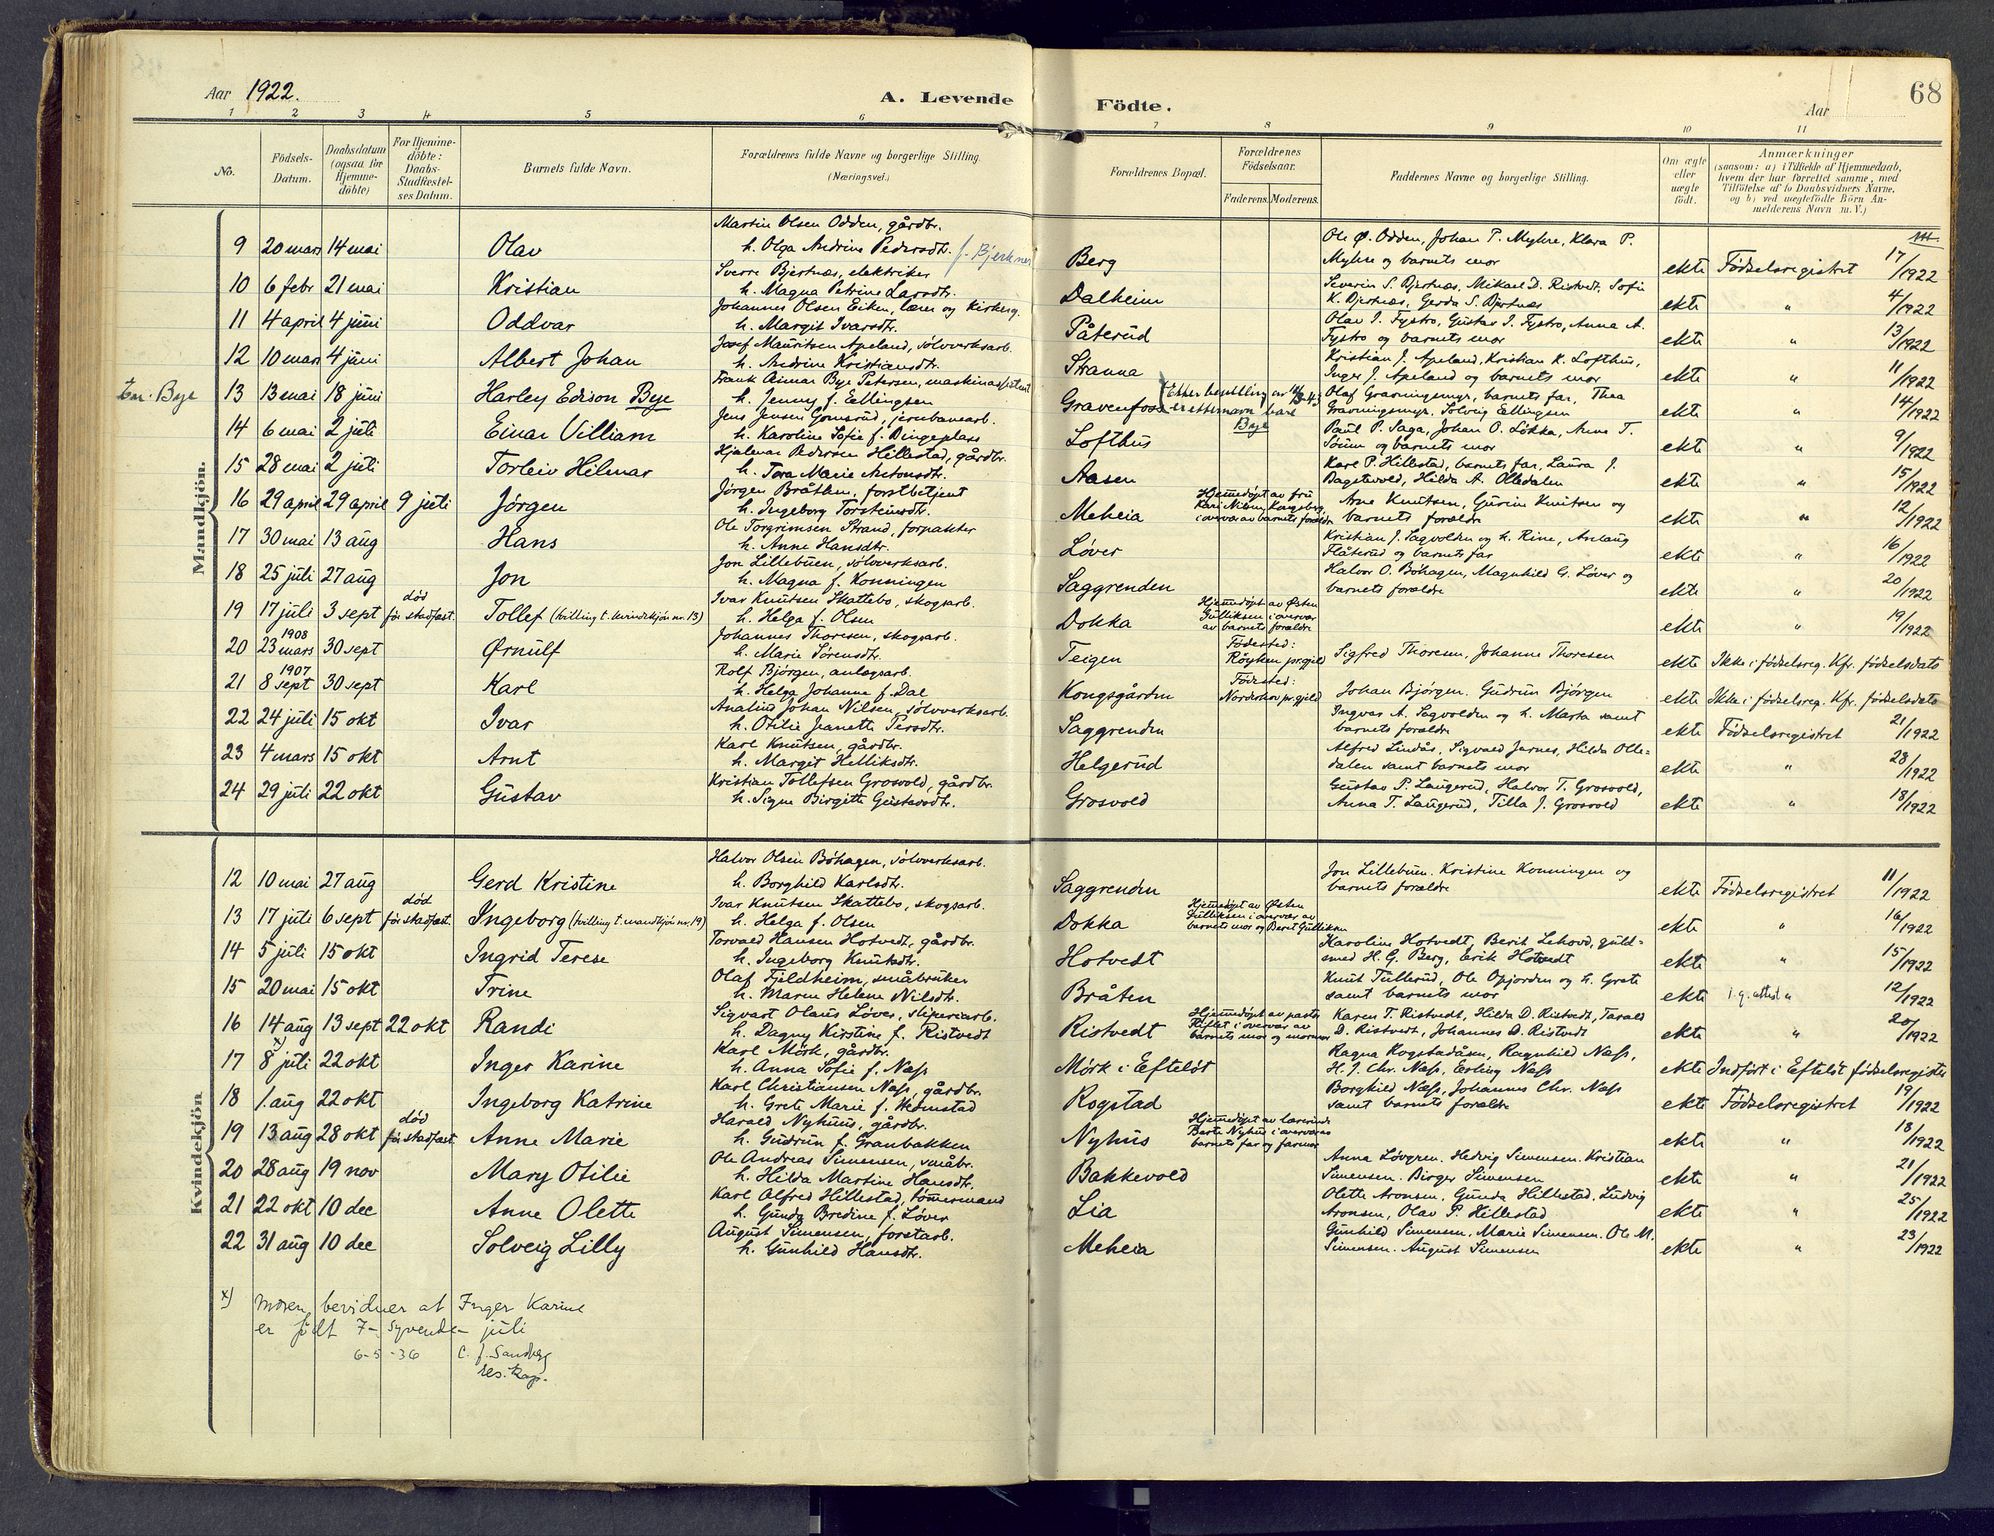 Aar 1922. A. Levende Födte. Aar 68
1 2 3 4 5 6 7 8 9 10 11
No. Födsels-Datum. Daabsdatum (ogsaa for Hjemmedöbte) For Hjemmedöbte: Daabs-Stadfæstelses Datum. Barnets fulde Navn. Forældrenes fulde Navne og borgerlige Stilling. (Næringsvei.) Forældrenes Bopæl. Forældrenes Födselsaar. Faderens. Moderens. Faddernes Navne og borgerlige Stilling. Om ægte eller uægte födt. Anmærkninger (saasom: a) i Tilfælde af Hjemmedaab, hvem der har forrettet samme, med Tilföielse af to Daabsvidners Navne, og b) ved uægtefödte Börn Anmelderens Navn m. V.)
Mandkjön.
9 20 mars 14 mai Olav Martin Olsen Odden, gårdbr. h. Olga Andrine Pedersdtr. f. Bjerknes Berg Ole Ø. Odden, Johan P. Myhre, Klara P. Myhre og barnets mor ekte Födselsregistret 17/1922
10 6 febr 21 mai Kristian Sverre Bjertnæs, elektriker h. Magna Petrine Larsdtr. Dalheim Severin S. Bjertnæs, Mikael D. Ristvedt, Sofie K. Bjertnæs, Gerda S. Bjertnæs ekte " 4/1922
11 4 april 4 juni Oddvar Johannes Olsen Eiken, lærer og kirkesg. h. Margit Ivarsdtr. Påterud Olav I. Fystro, Gustav I. Fystro, Anna A. Fystro og barnets mor ekte " 13/1922
12 10 mars 4 juni Albert Johan Josef Mauritsen Apeland, sölvverksarb. h. Andrine Kristiansdtr. Stranna Kristian J. Apeland, Kristian K. Lofthus, Inger J. Apeland og barnets mor ekte " 11/1922
Em. Bye 13 13 mai 18 juni Harley Edison Bye Frank Asmar Bye Petersen, maskinassistent h. Jenny f. Ellingsen Gravenfoss Etter bevilling av er etternavn bare Bye Olaf Gravningsmyr, barnets far, Thea Gravningsmyr. Solveig Ellingsen ekte " 14/1922
14 6 mai 2 juli Einar Villiam Jens Jensen Gomsrud, jernbanearb. h. Karoline Sofie f. Dingeplass Lofthus Paul P. Saga, Johan O. Løkka, Anne T. Sörum og barnets mor ekte " 9/1922
15 28 mai 2 juli Torleiv Hilmar Hjalmar Pedersen Hillestad, gårdbr. h. Tora Marie Antonsdtr. Aasen Karl P. Hillestad, barnets far, Laura J. Bagstevold, Hilda A. Olledalen ekte " 15/1922
16 29 april 29 april 9 juli Jørgen Jörgen Bråtten, forstbetjent h. Ingeborg Torsteinsdtr. Meheia Hjemmedöpt av fru Kari Nilsen, Kongsberg, i overvær av barnets forældre Arne Knutsen, Gurine Knutsen og barnets forældre ekte " 12/1922
17 30 mai 13 aug Hans Ole Torgrimsen Strand, forpakter h. Anne Hansdtr. Løver Kristian J. Sagvolden og h. Rine, Anlaug Flåterud og barnets far ekte " 16/1922
18 25 juli 27 aug Jon Jon Lillebuen, sölvverksarb. h. Magna f. Konningen Saggrenden Halvor O. Böhagen, Magnhild G. Løver og barnets forældre ekte " 20/1922
19 17 juli 3 sept död för stadfæst. Tollef (tvilling t. kvindekjön nr. 13) Ivar Knutsen Skattebo, skogsarb. h. Helga f. Olsen Dokka Hjemmedöpt av Østen Gulliksen i overvær av barnets forældre ekte " 19/1922
20 1908 23 mars 30 sept Ørnulf Johannes Thoresen, skogsarb. h. Marie Sørensdtr. Teigen Födested: Röyken pr.gjeld Sigfred Thoresen, Johanne Thoresen ekte Ikke i födselsreg. Kfr. födselsdato
21 1907 8 sept 30 sept Karl Rolf Björgen, anlegsarb. h. Helga Johanne f. Dal Kongsgården Födested: Norderhov pr.gjeld Johan Björgen. Gudrun Björgen ekte Ikke i födselsreg. Kfr. födselsdato
22 24 juli 15 okt Ivar Analius Johan Nilsen, sölvverksarb. h. Otilie Jeanette Persdtr. Saggrenden Ingvar A. Sagvolden og h. Marta samt barnets forældre ekte Födselsregistret 21/1922
23 4 mars 15 okt Arnt Karl Knutsen, gårdbr. h. Margit Helliksdtr. Helgerud Alfred Lindås, Sigvald Jarnes, Hilda Olledalen samt barnets mor ekte " 28/1922
24 29 juli 22 okt Gustav Kristian Tollefsen Grosvold, gårdbr. h. Signe Birgitte Gustavsdtr. Grosvold Gustav P. Laugerud, Halvor T. Grosvold, Anna T. Laugerud, Tilla J. Grosvold ekte " 18/1922
Kvindekjön
12 10 mai 27 aug Gerd Kristine Halvor Olsen Böhagen, sölvverksarb. h. Borghild Karlsdtr. Saggrenden Jon Lillebuen. Kristine Konningen og barnets forældre ekte Födselsregistret 11/1922
13 17 juli 6 sept död för stadfæst. Ingeborg (tvilling t. mandkjön nr. 19) Ivar Knutsen Skattebo, skogsarb. h. Helga f. Olsen Dokka Hjemmedöpt av Østen Gulliksen i overvær av barnets mor og Beret Gulliksen ekte " 16/1922
14 5 juli 15 okt Ingrid Terese Torvald Hansen Hotvedt, gårdbr. h. Ingeborg Knutsdtr. Hotvedt Karoline Hotvedt, Berit Lehovd, guldsmed H. G. Berg, Erik Hotvedt ekte " 15/1922
15 20 mai 15 okt Trine Olaf Fjeldheim, småbruker h. Maren Helene Nilsdtr. Bråten Knut Tullerud, Ole Opjorden og h. Grete samt barnets mor ekte " 12/1922
16 14 aug 13 sept 22 okt Randi Sigvart Olaus Løver, sliperiarb. h. Dagny Kirstine f. Ristvedt Ristvedt Hjemmedöpt av pastor i overvær av barnets mor og mormor Karen T. Ristvedt, Hilda D. Ristvedt, Tarald D. Ristvedt, Johannes D. Ristvedt ekte " 20/1922
17 x) 8 juli 22 okt Inger Karine Karl Mörk, gårdbr. h. Anna Sofie f. Næss Mørk i Efteløt Ragna Rogstadåsen, Ragnhild Næss, H. J. Chr. Næss, Erling Næss ekte Indført i Efteløt födselsregister
18 1. aug 22 okt Ingeborg Katrine Karl Christiansen Næss, gårdbr. h. Grete Marie f. Wemstad Rogstad Borghild Næss, Johannes Chr. Næss samt barnets forældre ekte Födselsregistret 19/1922
19 13 aug 28 okt död för stadfæst. Anne Marie Harald Nyhuus, gårdbr. h. Gudrun f. Granbakken Nyhus Hjemmedöpt av lærerinde Berte Nyhus i overvær av barnets far og farmor ekte " 18/1922
20 28 aug 19 nov Mary Otilie Ole Andreas Simensen, småbr. h. Hilda Martine Hansdtr. Bakkevold Anna Lövgren, Hedvig Simensen. Kristian Simensen. Birger Simensen ekte " 21/1922
21 22 okt 10 dec Anne Olette Karl Alfred Hillestad, tömmermand h. Gunda Bredine f. Løver Lia Olette Aronsen, Gunda Hillestad, Ludvig Aronsen, Olav P. Hillestad ekte " 25/1922
22 31 aug 10 dec Solveig Lilly August Simensen, forstarb. h. Gunhild Hansdtr. Meheia Gunhild Simensen, Marie Simensen. Ole M. Simensen. August Simensen ekte " 23/1922
x) Moren bevidner at Inger Karine
er født 7 - syvende - juli
6-5-36 C. f. Sandberg
res. kap.